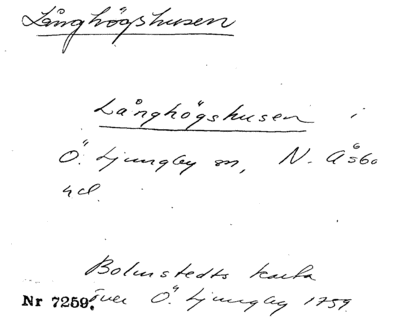 Långhögshusen
Långhögshusen i
Ö. Ljungby sn, N. Åsbo
hd.
Bolmstedts karta
Nr 7259. över Ö. Ljungby 1759.